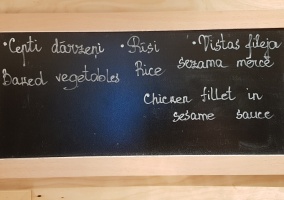 • Cepti dārzeņi
Baked vegetables
• Rīsi
Rice
• Vistas fileja
sezama mērcē
Chicken fillet in
sesame sauce